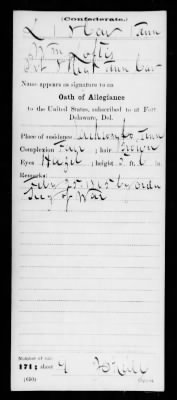 (Confederate.)
L 1 & Cav Tenn
Wm Lofty
Pvt 8 Regt Tenn Cav
Name appears as signature to an
Oath of Allegiance
to the United States, subscribed to at Fort
Delaware, Del.
Place of residence Tenn
Complexion Fair ; hair Brown
Eyes Hazel ; height 5 ft. 6 in.
Remarks:
Feby 25 1865 by order
Secy of War
Number of roll:
171; sheet 9
(639)
Copyist.